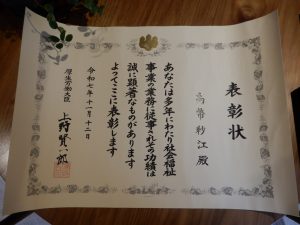 表彰状
高常紗江殿
あなたは多年にわたり社会福祉
事業の業務に従事されその功績は
誠に顕著なものがあります
よってここに表彰します
令和七年十一月十二日
厚生労働大臣
上野賢一郎